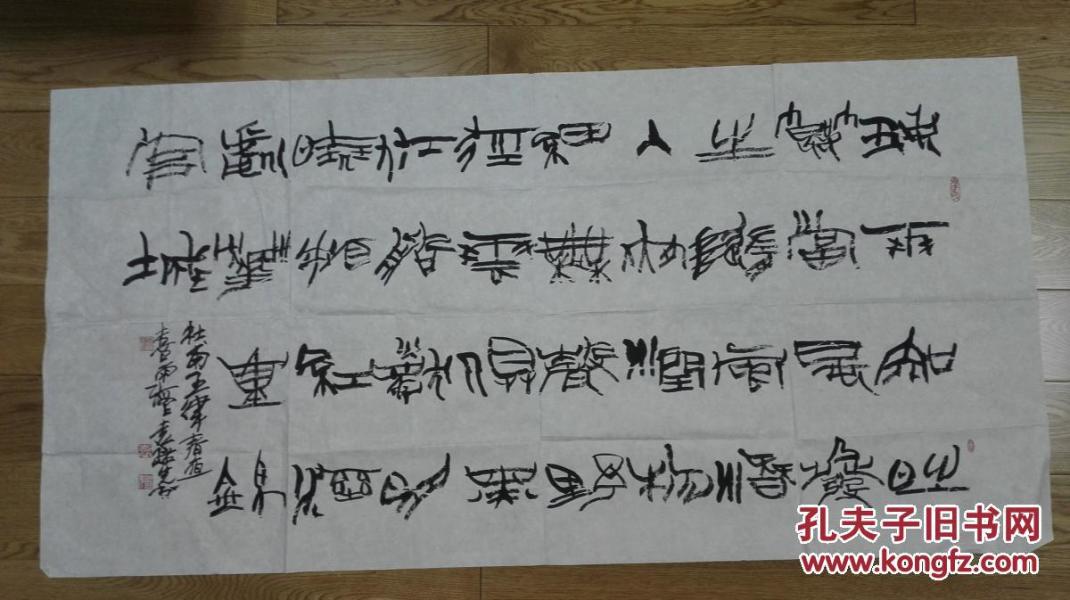 好雨知時
節當春乃發
生隨風潛
入夜潤物
細無聲野
徑雲俱黑
江船火獨明
曉看紅濕
處花重錦
官城
杜甫五律春夜
喜雨
孔夫子旧书网
www.kongfz.com